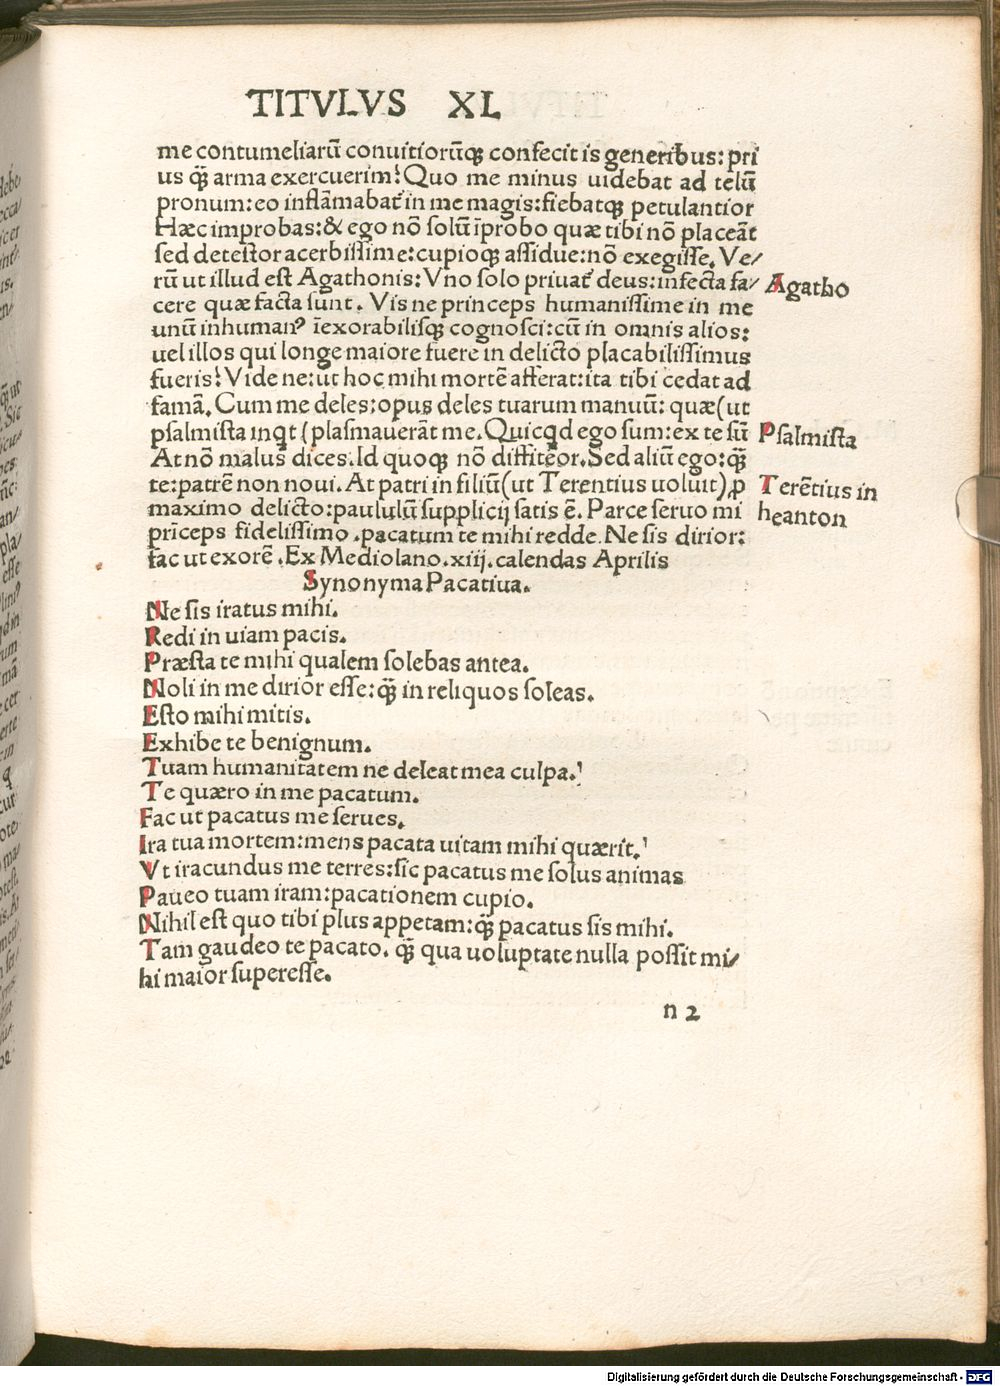 TITVLVS XL
me contumeliarū conuitiorūqꝫ confecit is generibus: pri
us q̄ꝫ arma exercuerim⁝ Quo me minus uidebat ad telū
pronum: eo inflāmabat᷑ in me magis: fiebatqꝫ petulantior
Hæc improbas: & ego nō solū īprobo quæ tibi nō placeāt
sed detestor acerbissime: cupioqꝫ assidue: nō exegisse. Ve/
rū ut illud est Agathonis: Vno solo priuat᷑ deus: infecta fa/
cere quæ facta sunt. Vis ne princeps humanissime in me
unū inhumanꝰ īexorabilisqꝫ cognosci: cū in omnis alios:
uel illos qui longe maiore fuere in delicto placabilissimus
fueris⁝ Vide ne: ut hoc mihi mortē afferat: ita tibi cedat ad
famā. Cum me deles: opus deles tuarum manuū: quæ (ut
psalmista inqt ( plasmauerāt me. Quicqd ego sum: ex te sū
At nō malus dices. Id quoqꝫ nō diffiteor. Sed aliū ego: q̄ꝫ
te: patrē non noui. At patri in filiū (ut Terentius uoluit) ꝓ
maximo delicto: paululū supplicij satis ē. Parce seruo mi
prīceps fidelissimo. pacatum te mihi redde. Ne sis dirior:
fac ut exorē. Ex Mediolano. xiij. calendas Aprilis
Synonyma Pacatiua.
Ne sis iratus mihi.
Redi in uiam pacis.
Præsta te mihi qualem solebas antea.
Noli in me dirior esse: q̄ꝫ in reliquos soleas.
Esto mihi mitis.
Exhibe te benignum.
Tuam humanitatem ne deleat mea culpa.
Te quæro in me pacatum.
Fac ut pacatus me serues.
Ira tua mortem: mens pacata uitam mihi quærit.
Vt iracundus me terres: sic pacatus me solus animas
Paueo tuam iram: pacationem cupio.
Nihil est quo tibi plus appetam: q̄ꝫ pacatus sis mihi.
Tam gaudeo te pacato. q̄ꝫ qua uoluptate nulla possit mi/
hi maior superesse.
n 2
Agatho
Psalmista
Terētius in
heanton
Digitalisierung gefördert durch die Deutsche Forschungsgemeinschaft - DFG